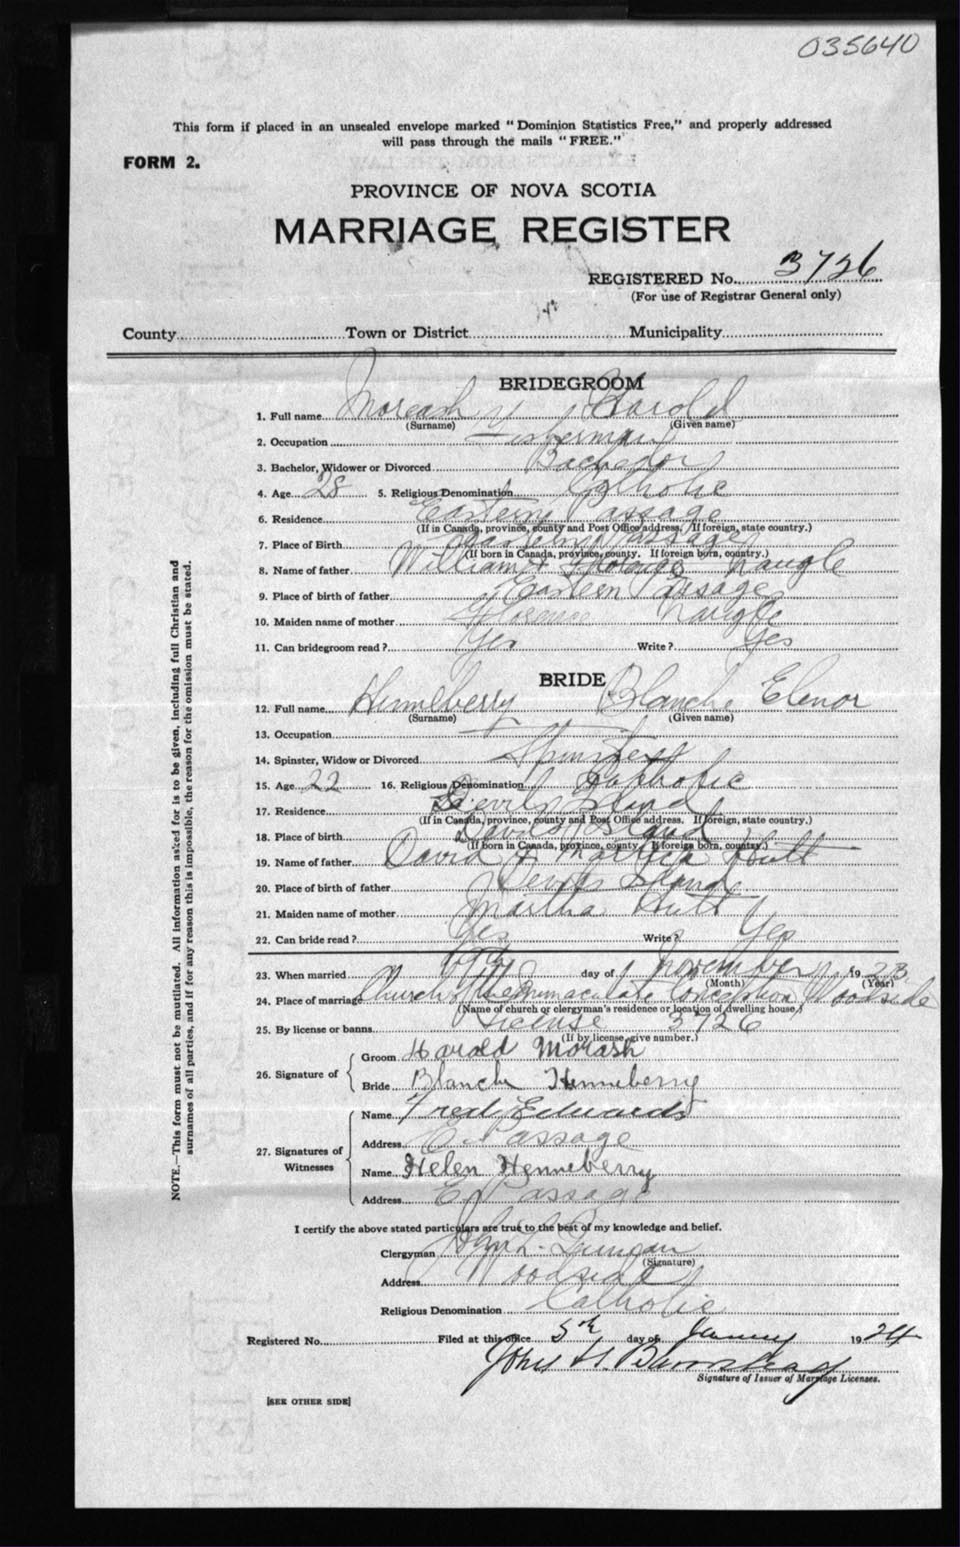 035640
This form if placed in an unsealed envelope marked "Dominion Statistics Free," and properly addressed
will pass through the mails "FREE."
FORM 2.
PROVINCE OF NOVA SCOTIA
MARRIAGE REGISTER
REGISTERED No. 3726
(For use of Registrar General only)
County Town or District Municipality
BRIDEGROOM
1. Full name Moreash Harold
(Surname) (Given name)
2. Occupation Fisherman
3. Bachelor, Widower or Divorced Bachelor
4. Age 28 5. Religious Denomination Catholic
6. Residence Eastern Passage
(If in Canada, province, county and Post Office address. If foreign, state country.)
7. Place of Birth Eastern Passage
(If born in Canada, province, county. If foreign born, country.)
8. Name of father William & Naugle
9. Place of birth of father Eastern Passage
10. Maiden name of mother Florence Naugle
11. Can bridegroom read? Yes Write? Yes
BRIDE
12. Full name Henneberry Blanche Elenor
(Surname) (Given name)
13. Occupation
14. Spinster, Widow or Divorced Spinster
15. Age 22 16. Religious Denomination Catholic
17. Residence Devils Island
(If in Canada, province, county and Post Office address. If foreign, state country.)
18. Place of birth Devils Island
(If born in Canada, province, county. If foreign born, country.)
19. Name of father David & Martha Hutt
20. Place of birth of father Devils Island
21. Maiden name of mother Martha Hutt
22. Can bride read? Yes Write? Yes
23. When married day of November 1923
(Month) (Year)
24. Place of marriage Church of the Immaculate Conception Woodside
(Name of church or clergyman's residence or location of dwelling house.)
25. By license or banns License 3726
(If by license, give number.)
26. Signature of Groom Harold Morash
Bride Blanche Henneberry
27. Signatures of Witnesses Name Fred Edwards
Address E. Passage
Name Helen Henneberry
Address E. Passage
I certify the above stated particulars are true to the best of my knowledge and belief.
Clergyman
(Signature)
Address Woodside
Religious Denomination Catholic
Registered No. Filed at this office 5th day of January 1924
John H.
Signature of Issuer of Marriage Licenses.
[SEE OTHER SIDE]
NOTE.—This form must not be mutilated. All information asked for is to be given, including full Christian and
surnames of all parties, and if for any reason this is impossible, the reason for the omission must be stated.